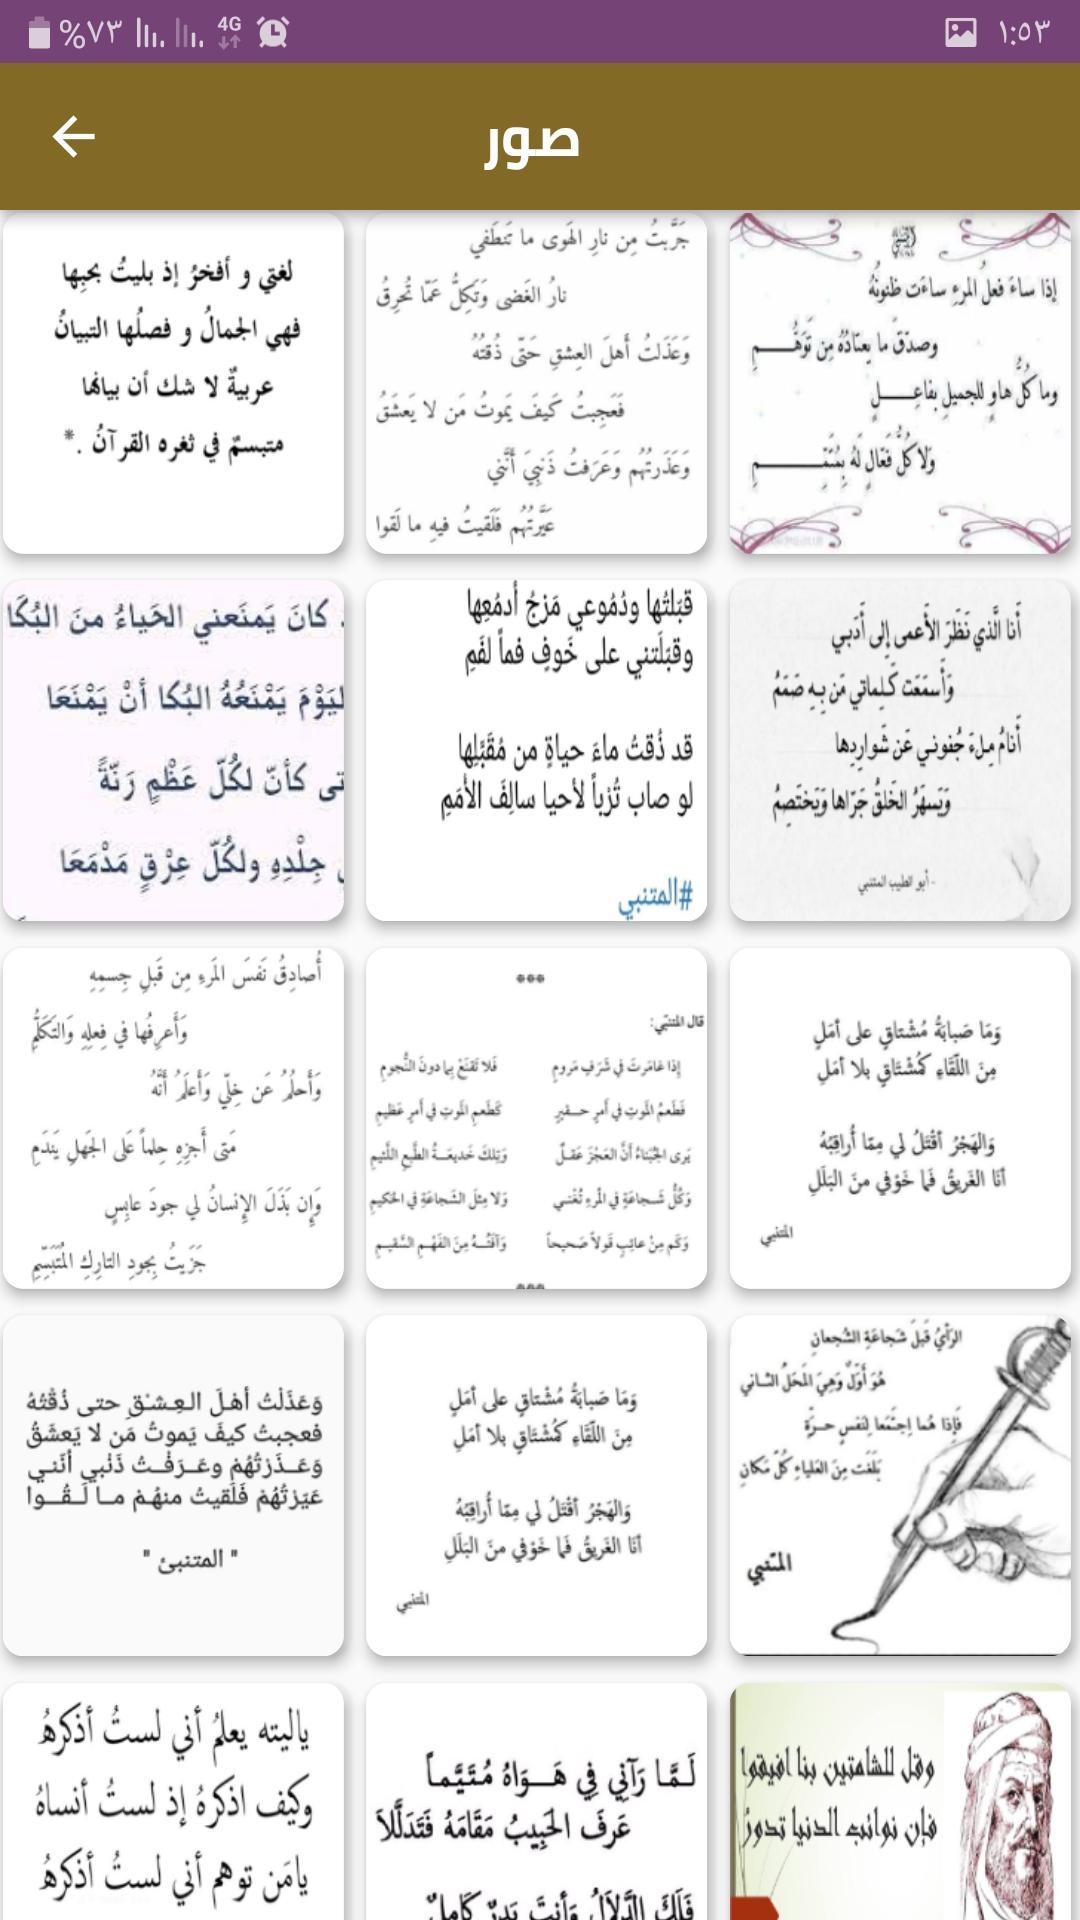 %٧٣
4G
١:٥٣
صور
إذا ساءَ فعلُ المرءِ ساءَت ظنونُهُ
وصدّقَ ما يعتادُهُ مِن تَوَهُّـــــمِ
وما كُلُّ هاوٍ للجميلِ بفاعِـــــلٍ
وَلا كلُّ فعّالٍ لَهُ بِمُتَمِّـــــــــمِ
جَرَّبتُ مِن نارِ الهَوى ما تَنطَفي
نارُ الغَضى وَتَكِلُّ عَمّا تُحرِقُ
وَعَذَلتُ أَهلَ العِشقِ حَتّى ذُقتُهُ
فَعَجِبتُ كَيفَ يَموتُ مَن لا يَعشَقُ
وَعَذَرتُهُم وَعَرَفتُ ذَنبِيَ أَنَّني
عَيَّرتُهُم فَلَقيتُ فيهِ ما لَقوا
لغتي و أفخرُ إذ بليتُ بحبِها
فهي الجمالُ و فصلُها التبيانُ
عربيةٌ لا شك أن بيانها
متبسمٌ في ثغره القرآنُ .*
أَنا الَّذي نَظَرَ الأَعمى إِلى أَدَبي
وَأَسمَعَت كَلِماتي مَن بِهِ صَمَمُ
أَنامُ مِلءَ جُفوني عَن شَوارِدِها
وَيَسهَرُ الخَلقُ جَرّاها وَيَختَصِمُ
- أبو الطيب المتنبي
قبّلتُها ودُمُوعي مَزجُ أدمُعِها
وقبّلَتني على خَوفٍ فماً لفَمِ
قد ذُقتُ ماءَ حياةٍ من مُقَبّلِها
لو صاب تُرْباً لأحيا سالِفَ الأُمَمِ
#المتنبي
كانَ يَمنَعني الحَياءُ منَ البُكَا
ليَوْمَ يَمْنَعُهُ البُكا أنْ يَمْنَعَا
تى كأنّ لكُلّ عَظْمٍ رَنّةً
جِلْدِهِ ولكُلّ عِرْقٍ مَدْمَعَا
وَمَا صَبابَةُ مُشْتاقٍ على أمَلٍ
مِنَ اللّقَاءِ كمُشْتَاقٍ بلا أمَلِ
وَالهَجْرُ أقْتَلُ لي مِمّا أُراقِبُهُ
أنَا الغَريقُ فَما خَوْفي منَ البَلَلِ
المتنبي
***
قال المتنبّي:
إذا غامَرتَ في شَرَفٍ مَرومٍ فَلا تَقنَعْ بِما دونَ النُّجومِ
فَطَعمُ المَوتِ في أمرٍ حـقيرٍ كَطَعمِ المَوتِ في أمرٍ عَظيمِ
يَرى الجُبَناءُ أنَّ العَجْزَ عَقـلٌ وَتِلكَ خَديعَـةُ الطَّبعِ اللَّئيمِ
وَكُلُّ شَـجاعَةٍ في المَرءِ تُغْنـي وَلا مِثلَ الشَّجاعَةِ في الحَكيمِ
وَكَم مِنْ عائِبٍ قَولاً صَحيحاً وَآفَتُــهُ مِنَ الفَهْـمِ السَّقيـمِ
***
أُصادِقُ نَفسَ المَرءِ مِن قَبلِ جِسمِهِ
وَأَعرِفُها في فِعلِهِ وَالتَكَلُّمِ
وَأَحلُمُ عَن خِلّي وَأَعلَمُ أَنَّهُ
مَتى أَجزِهِ حِلماً عَلى الجَهلِ يَندَمِ
وَإِن بَذَلَ الإِنسانُ لي جودَ عابِسٍ
جَزَيتُ بِجودِ التارِكِ المُتَبَسِّمِ
الرَأيُ قَبلَ شَجاعَةِ الشُجعانِ
هُوَ أَوَّلٌ وَهِيَ المَحَلُّ الثـاني
فَإِذا هُما اِجتَمَعا لِنَفسٍ حـرَّةٍ
بَلَغَت مِنَ العَلياءِ كُلَّ مَكانِ
المتنبي
وَمَا صَبابَةُ مُشْتاقٍ على أمَلٍ
مِنَ اللّقَاءِ كمُشْتَاقٍ بلا أمَلِ
وَالهَجْرُ أقْتَلُ لي مِمّا أُراقِبُهُ
أنَا الغَريقُ فَما خَوْفي منَ البَلَلِ
المتنبي
وَعَذَلْتُ أهلَ العِـشـقِ حتى ذُقْتُهُ
فعجبتُ كيفَ يَموتُ مَن لا يَعشَقُ
وَعَـذَرْتُهُمْ وعَـرَفْـتُ ذَنْبي أنّنـي
عَيّرْتُهُمْ فَلَقيتُ منهُـمْ مـا لَـقُــوا
" المتنبئ "
وقل للشامتين بنا افيقوا
فإن نوائب الدنيا تدورُ
لَمَّا رَآنِي فِي هَـــوَاهُ مُتَيَّمـاً
عَرفَ الحَبِيبُ مَقَامَهُ فَتَدَلَّلاَ
فَلَكَ الدَّلاَلُ وَأَنتَ بَدرٌ كَامِلٌ
ياليته يعلمُ أني لستُ أذكرهُ
وكيف اذكرهُ إذ لستُ أنساهُ
يامَن توهم أني لستُ أذكرهُ